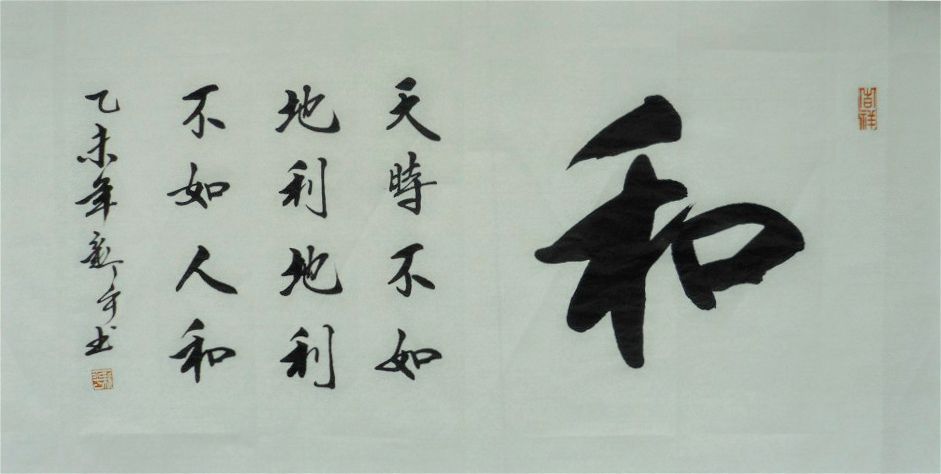 吉祥
和
天時不如
地利地利
不如人和
乙未年书